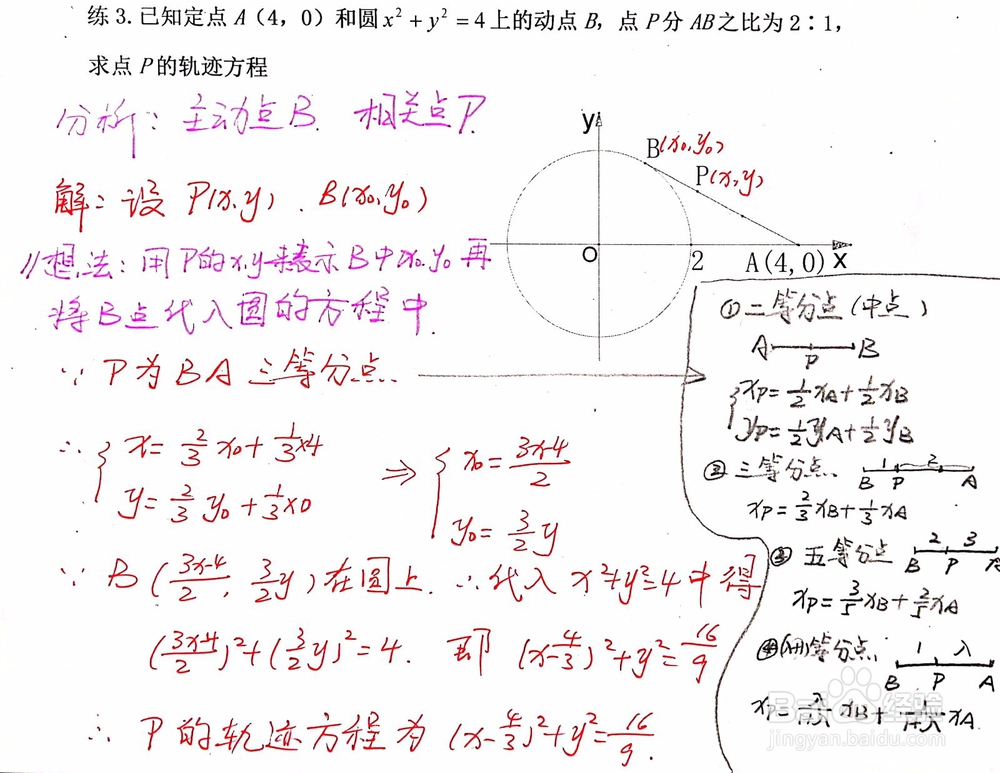 练3.已知定点A（4，0）和圆x²+y²=4上的动点B，点P分AB之比为2：1，
求点P的轨迹方程
分析：主动点B. 相关点P.
解：设 P(x,y)、B(x₀,y₀)
//想法：用P的x,y来表示B中x₀,y₀再
将B点代入圆的方程中.
∵ P为BA三等分点.
∴ { x=2/3 x₀+1/3×4
y=2/3 y₀+1/3×0
⇒ { x₀=(3x-4)/2
y₀=3/2 y
∵ B(3x-4/2, 3/2 y)在圆上. ∴代入 x²+y²=4中得
(3x-4/2)²+(3/2 y)²=4. 即 (x-4/3)²+y²=16/9
∴ P的轨迹方程为 (x-4/3)²+y²=16/9.
y
B(x₀,y₀)
P(x,y)
O
2
A(4,0)
x
①二等分点(中点)
A P B
{ xP=1/2 xA+1/2 xB
yP=1/2 yA+1/2 yB
②三等分点.
1 2
B P A
xP=2/3 xB+1/3 xA
③五等分点
2 3
B P A
xP=3/5 xB+2/5 xA
等分点.
1 λ
B P A
xP=λ/1+λ xB+1/1+λ xA
Baidu经验
jingyan.baidu.com